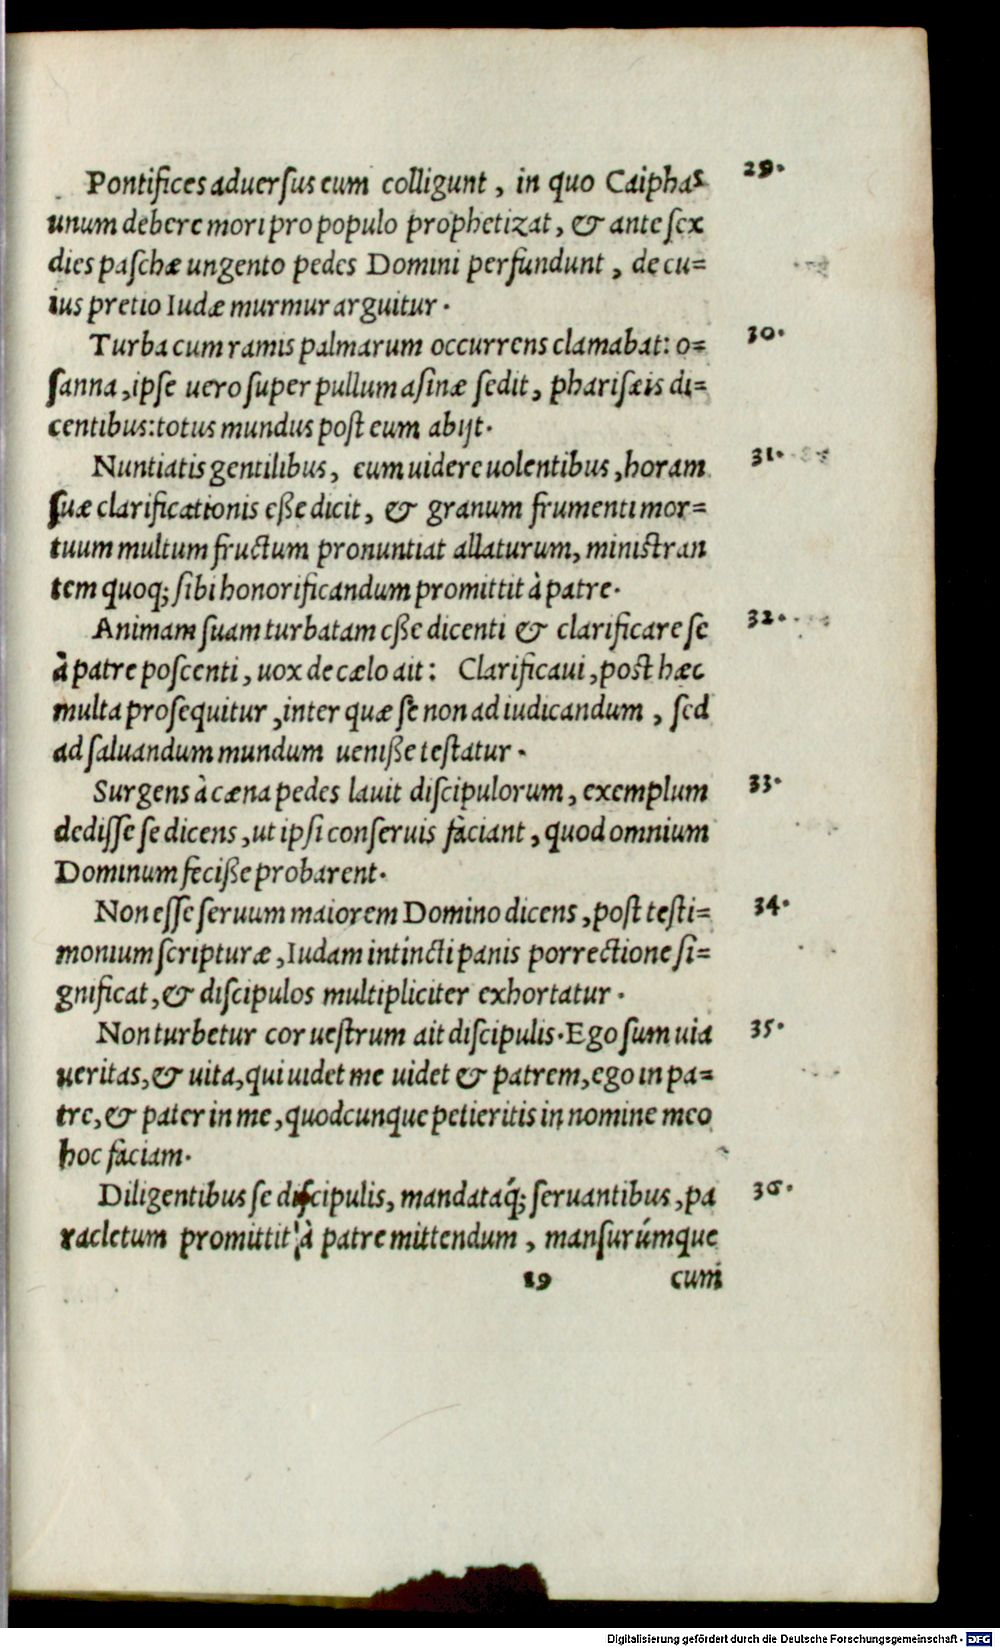 Pontifices aduersus eum colligunt, in quo Caiphas 29.
unum debere mori pro populo prophetizat, & ante sex
dies paschæ ungento pedes Domini perfundunt, de cu=
ius pretio Iudæ murmur arguitur.
Turba cum ramis palmarum occurrens clamabat: o= 30.
sanna, ipse uero super pullum asinæ sedit, pharisæis di=
centibus: totus mundus post eum abijt.
Nuntiatis gentilibus, eum uidere uolentibus, horam 31.
suæ clarificationis eße dicit, & granum frumenti mor=
tuum multum fructum pronuntiat allaturum, ministran
tem quoq; sibi honorificandum promittit à patre.
Animam suam turbatam eße dicenti & clarificare se 32.
à patre poscenti, uox de cælo ait: Clarificaui, post hæc
multa prosequitur, inter quæ se non ad iudicandum, sed
ad saluandum mundum ueniße testatur.
Surgens à cæna pedes lauit discipulorum, exemplum 33.
dedisse se dicens, ut ipsi conseruis faciant, quod omnium
Dominum feciße probarent.
Non esse seruum maiorem Domino dicens, post testi= 34.
monium scripturæ, Iudam intincti panis porrectione si=
gnificat, & discipulos multipliciter exhortatur.
Non turbetur cor uestrum ait discipulis. Ego sum uia 35.
ueritas, & uita, qui uidet me uidet & patrem, ego in pa=
tre, & pater in me, quodcunque petieritis in nomine meo
hoc faciam.
Diligentibus se discipulis, mandataq́; seruantibus, pa 36.
racletum promittit à patre mittendum, mansurúmque
19 cum
Digitalisierung gefördert durch die Deutsche Forschungsgemeinschaft - DFG